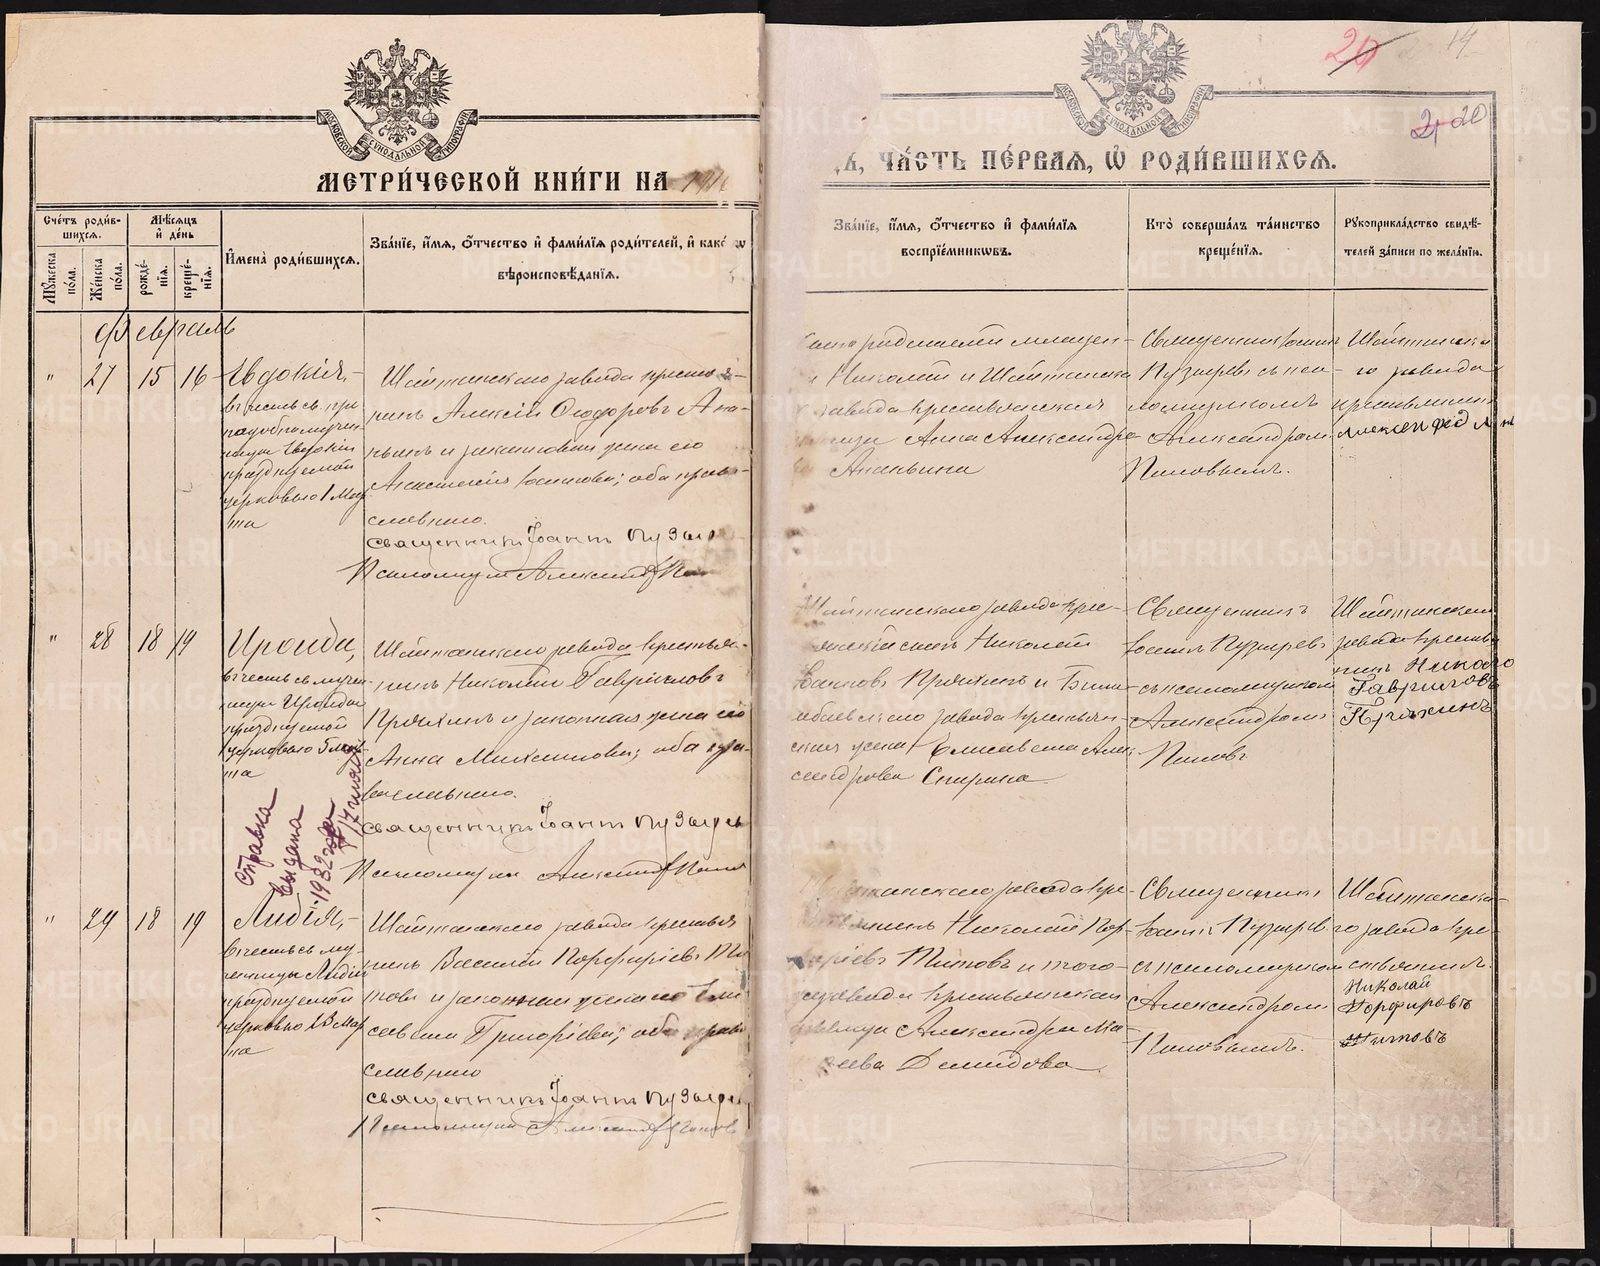 МОСКОВСКОЙ СѴНОДАЛЬНОЙ ТИПОГРАФІИ
МЕТРИ́ЧЕСКОЙ КНИ́ГИ НА
Сче́тъ роди́в-
шихсѧ.
Мѣ́сѧцъ
и҆ де́нь
Мꙋ́жеска по́ла.
Же́нска по́ла.
рожде́-
нїѧ.
креще́-
нїѧ.
И҆мена̀ роди́вшихсѧ.
Зва́нїе, и҆́мѧ, ѻ҆́тчество и҆ фами́лїѧ роди́телей, и҆ како́
вѣроисповѣ́данїѧ.
Февраль
" 27 15 16
Евдокія,
въ честь св. пре
подобномучен
ницы Евдокіи
празднуемой
церковью 1 Мар
та
Шайтанскаго завода кресть
нинъ Алексій Ѳеодоровъ Ана
и законная жена его
Анастасія; оба право
славнаго.
Священникъ Іоаннъ Пузыре
Псаломщикъ Александръ
" 28 18 19
Ираида,
въ честь св. мучен
ницы Ираиды
празднуемой
церковью 5 мар
та
Шайтанскаго завода крестья-
нинъ Николай Гавриловъ
Пряхинъ и законная жена его
Анна; оба пра-
вославнаго.
Священникъ Іоаннъ Пузырев
Псаломщикъ Александръ Попов
Справка
выдана
1932 года
17 июля
" 29 18 19
Лидія,
въ честь св. му
ченицы Лидіи
празднуемой
церковью 23 Мар
та
Шайтанскаго завода крестья
нинъ Василій Порфиріевъ Ти
товъ и законная жена его Ели
савета Григоріева; оба право
славнаго
Священникъ Іоаннъ Пузыре
Псаломщикъ Александръ Попов
МОСКОВСКОЙ СѴНОДАЛЬНОЙ ТИПОГРАФІИ
20 19
21 20
ЧА́СТЬ ПЕ́РВАѦ, Ѡ҆ РОДИ́ВШИХСѦ.
Зва́нїе, и҆́мѧ, ѻ҆́тчество и҆ фами́лїѧ
воспрїе́мникѡвъ.
Кто̀ соверша́лъ та́инство
креще́нїѧ.
Рꙋкоприкла́дство свидѣ́-
телей за́писи по жела́нїю.
Николай и Шайтанска
завода крестьянская
Анна Александро
Ананьина
Священникъ Іоаннъ
Пузыревъ съ пса-
ломщикомъ
Александромъ
Поповымъ.
Шайтанска
го завода
крестьянинъ
Алексей Фед
Шайтанскаго завода крес-
Николай
Іоанновъ Пряхинъ и Били-
мбаевскаго завода крестьян
ская жена Елисавета Алек
сандрова Спирина
Священникъ
Іоаннъ Пузыревъ
съ псаломщиком
Александромъ
Поповъ
Шайтанскаго
завода крестья
нинъ Николай
Гавриловъ
Пряхинъ
Шайтанскаго завода кре-
Николай Пор-
фиріевъ Титовъ и того-
завода крестьянская
девица Александра Ма-
Демидова
Священникъ
Іоаннъ Пузырев
съ псаломщиком
Александромъ
Поповымъ.
Шайтанска-
го завода кре-
стьянинъ.
Николай
Порфировъ
Титовъ
METRIKI.GASO-URAL.RU